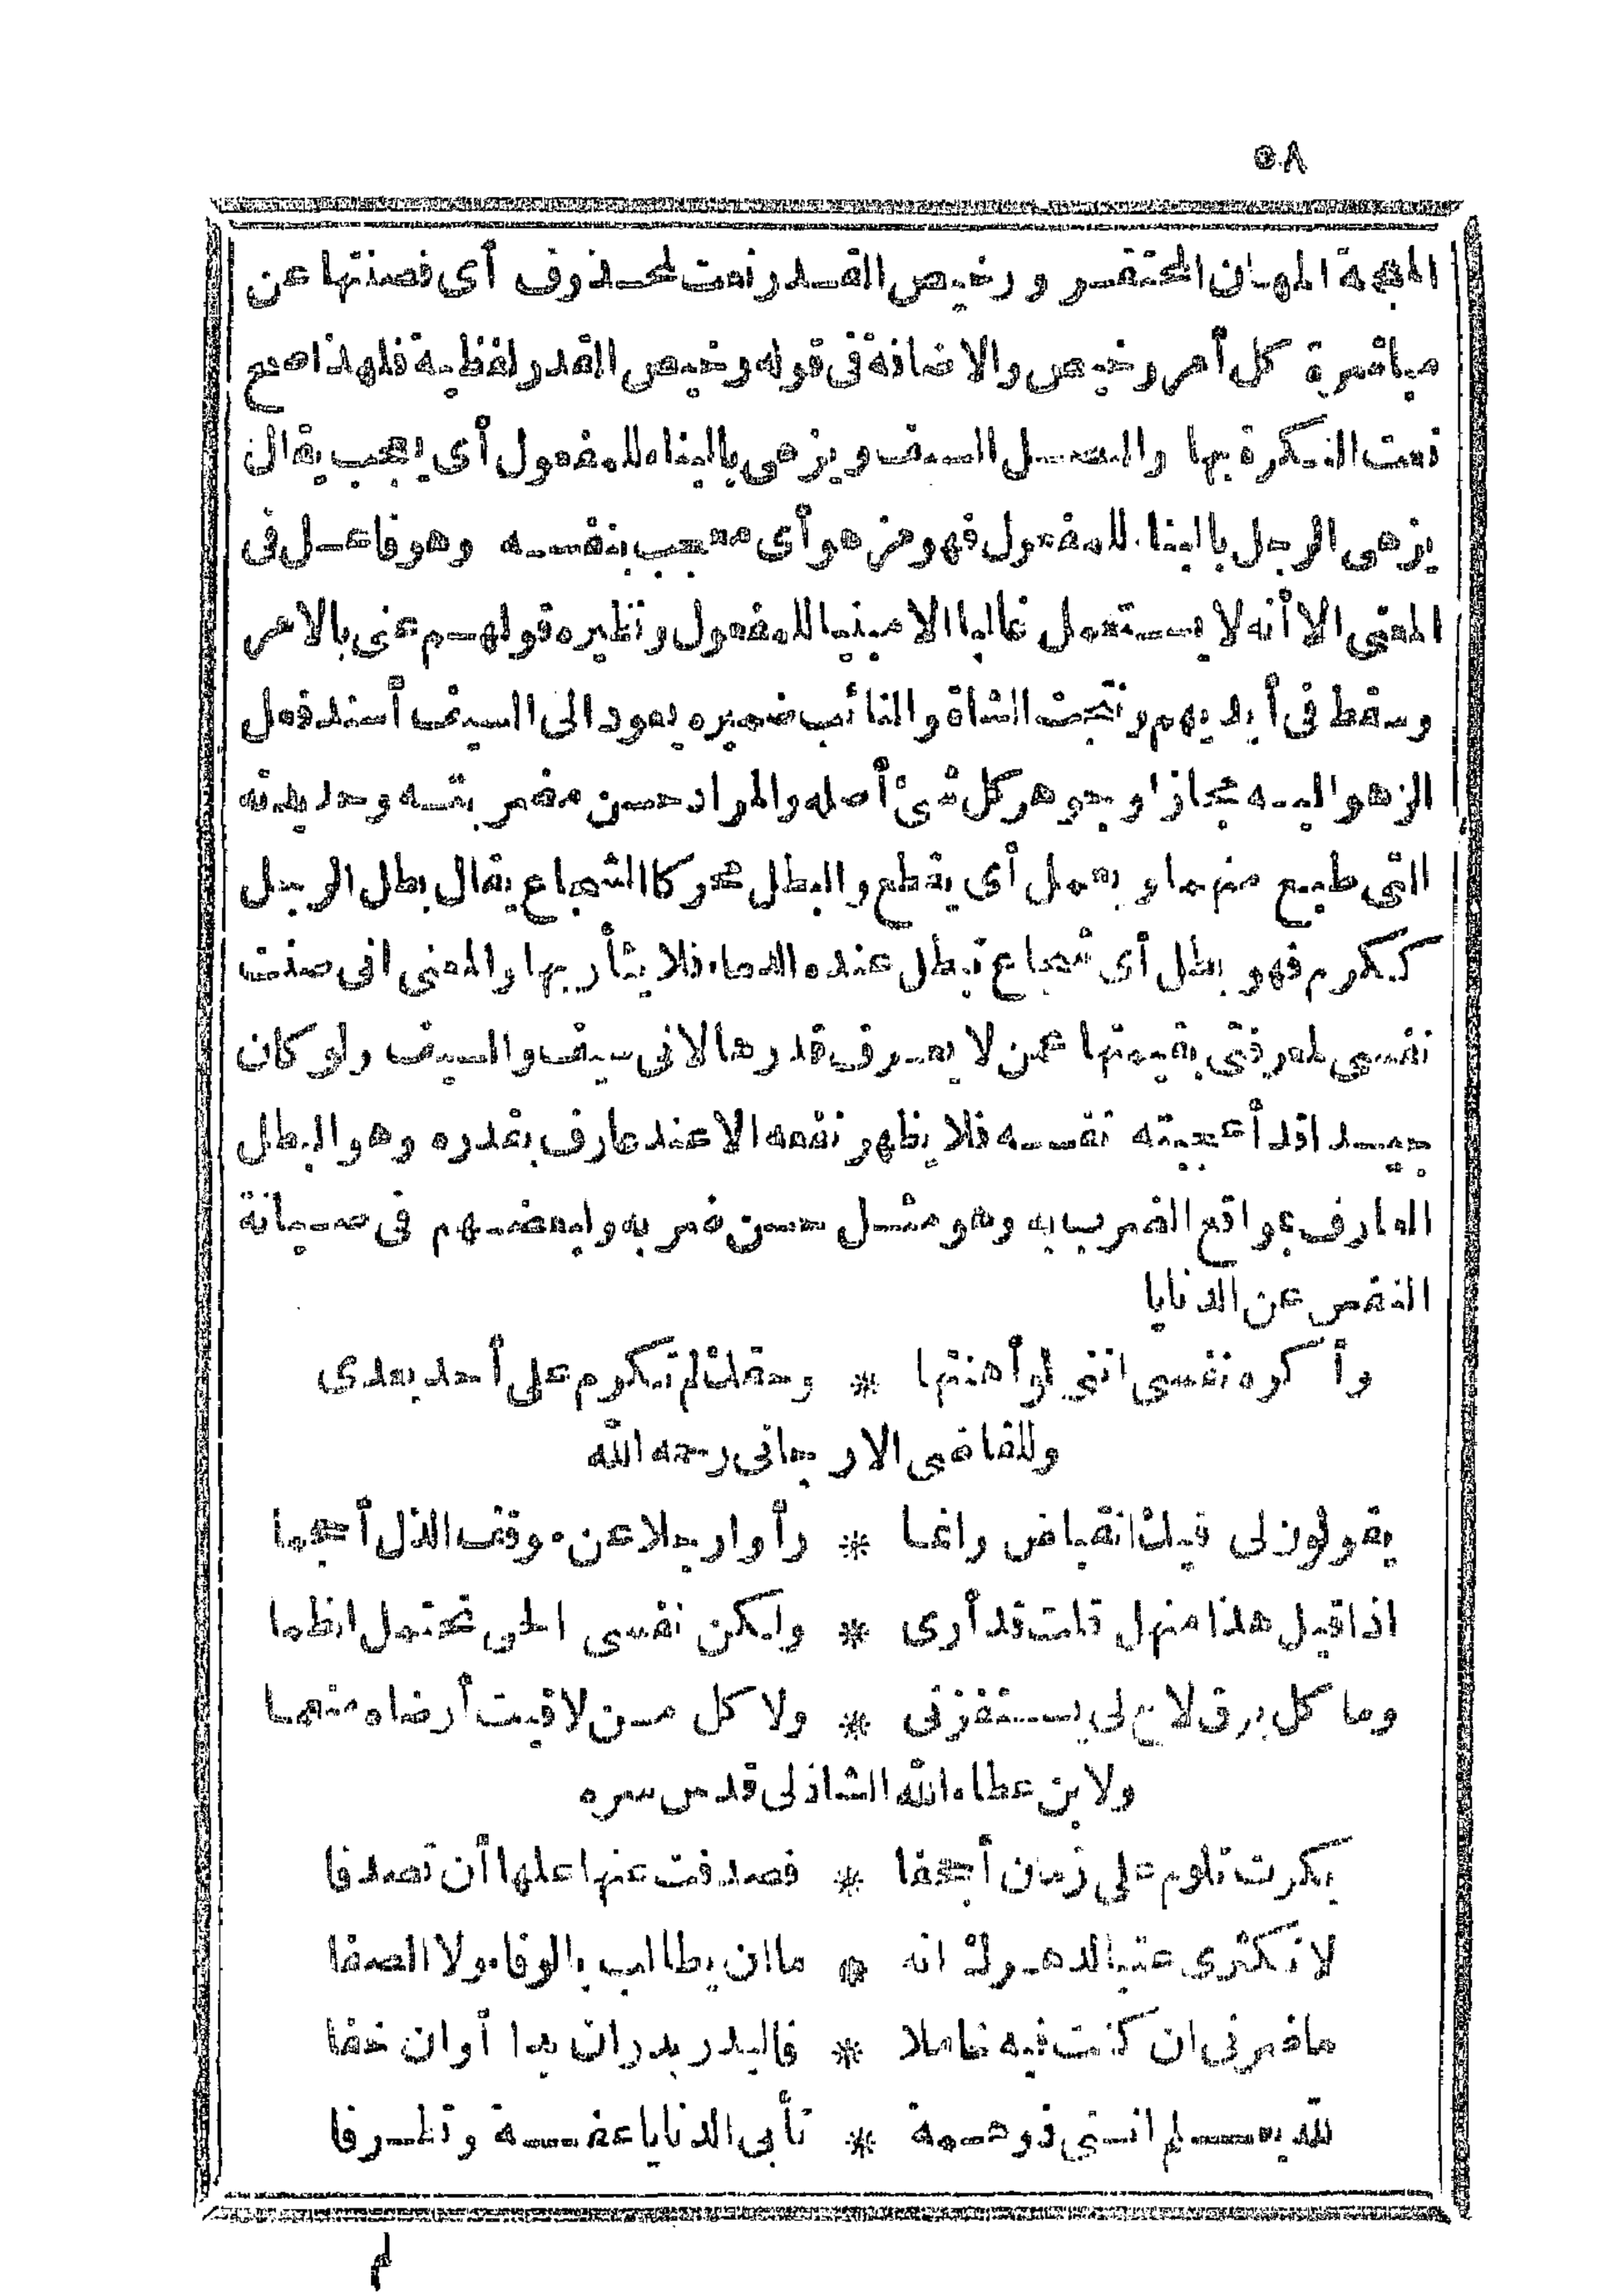 ٥٨
المهجة المهان المحتقر ورخيص القدر نعت لمحذوف أى فصنتها عن
مباشرة كل أمر رخيص والاضافة فى قوله رخيص القدر لفظية فلهذا صح
نعت النكرة بها والنصل السيف ويزهى بالبناء للمفعول أى يعجب يقال
يزهى الرجل بالبناء للمفعول فهو مزهو أى معجب بنفسه وهو فاعل فى
المعنى الا أنه لا يستعمل غالبا الا مبنيا للمفعول ونظيره قولهم عنى بالامر
وسقط فى أيديهم ونتجت الشاة والنائب ضميره يعود الى السيف أسند فعل
الزهو اليه مجازا وجوهر كل شئ أصله والمراد حسن مضربته وحديدته
التى طبع منها ويعمل أى يقطع والبطل محركا الشجاع يقال بطل الرجل
ككرم فهو بطل أى شجاع تبطل عنده الدماء فلا يثأر بها والمعنى انى صنت
نفسى لمعرفتى بقيمتها عمن لا يعرف قدرها لانى سيف والسيف ولو كان
جيدا قد أعجبته نفسه فلا يظهر نفعه الا عند عارف بقدره وهو البطل
العارف بمواقع الضرب به وهو مثل حسن ضربه ولبعضهم فى صيانة
النفس عن الدنايا
وأكره نفسى اننى لو أهنتها * وحقك لم تكرم على أحد بعدى
وللقاضى الارجانى رحمه الله
يقولون لى فيك انقباض وانما * رأوا رجلا عن موقف الذل أحجما
اذا قيل هذا منهل قلت قد أرى * ولكن نفسى الحر تحتمل الظما
وما كل برق لاح لى يستفزنى * ولا كل من لاقيت أرضاه منعما
ولابن عطاء الله الشاذلى قدس سره
بكرت تلوم على زمان أجحفا * فصدفت عنها علها أن تصدفا
لا تكثرى عتبا لدهرك انه * ما ان يطالب بالوفاء ولا الصفا
ما ضرنى ان كنت فيه خاملا * فالبدر بدر ان بدا أو ان خفا
لله يعلم اننى ذو همة * تأبى الدنايا عفة وتظرفا
لم